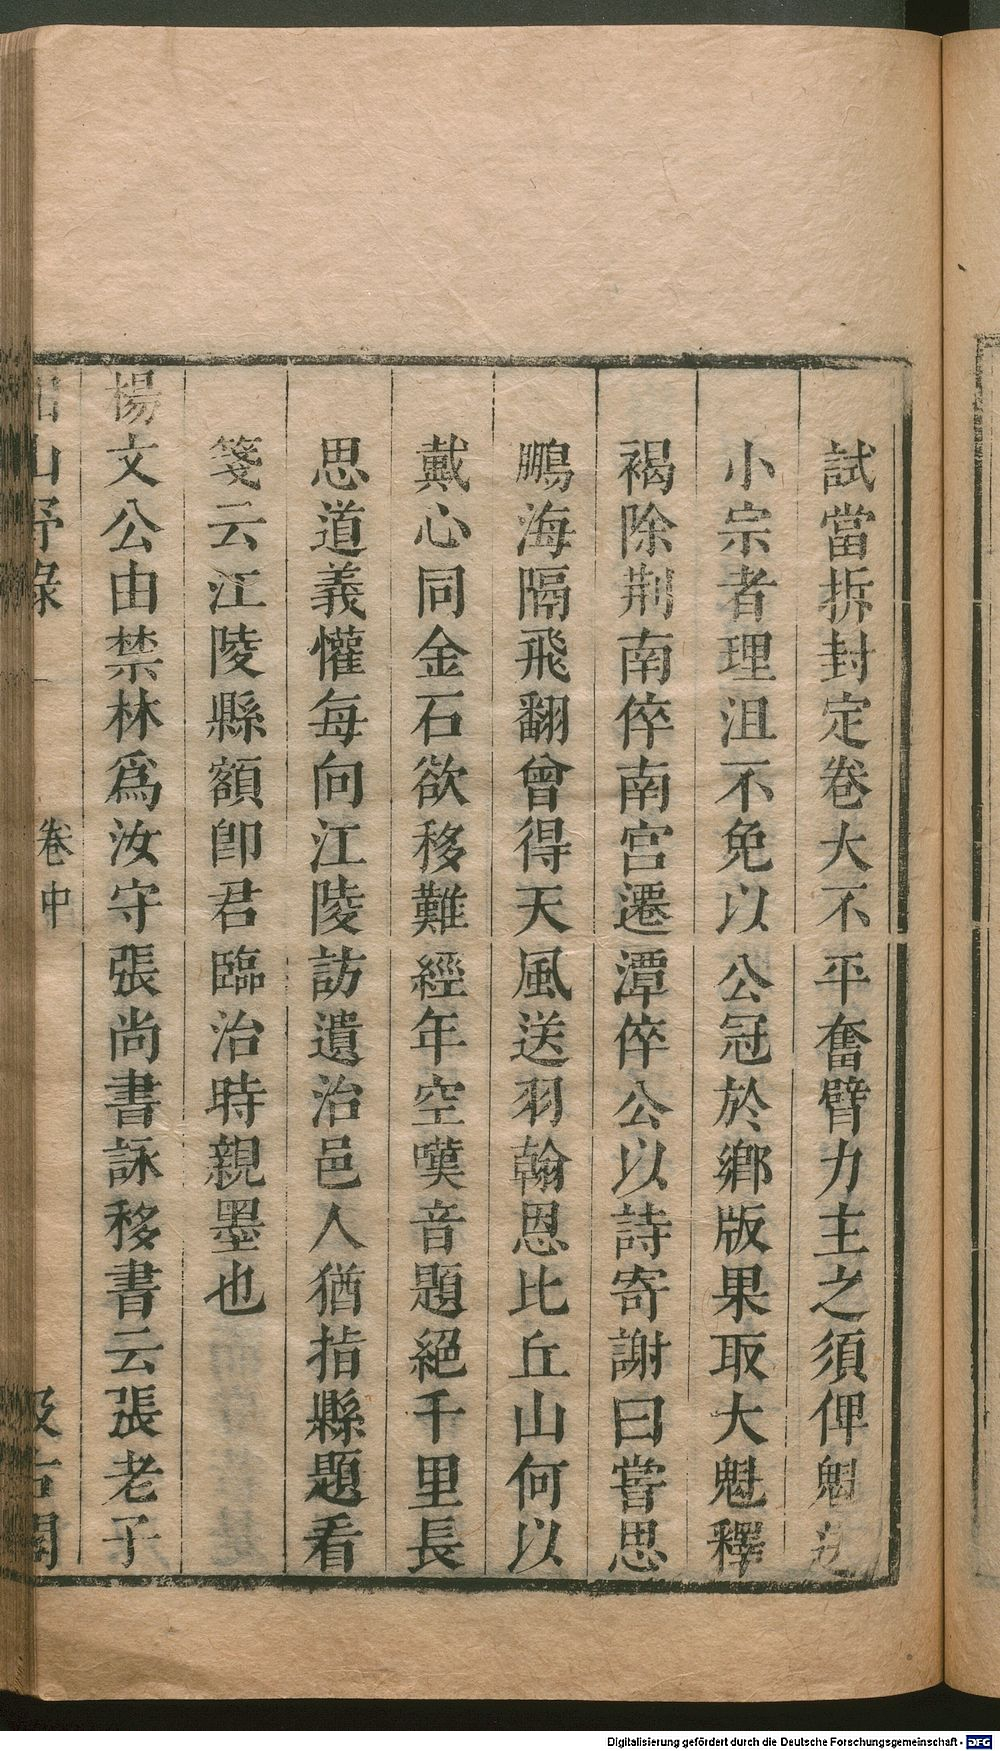 試當拆封定卷大不平奮臂力主之須俾魁送
小宗者理沮不免以公冠於鄉版果取大魁釋
褐除荆南倅南宫遷潭倅公以詩寄謝曰嘗思
鵬海隔飛翻曾得天風送羽翰恩比丘山何以
戴心同金石欲移難經年空嘆音題絕千里長
思道義懽每向江陵訪遺治邑人猶指縣題看
箋云江陵縣額卽君臨治時親墨也
楊文公由禁林爲汝守張尚書詠移書云張老子
山野錄
卷中
汲古閣
Digitalisierung gefördert durch die Deutsche Forschungsgemeinschaft - DFG